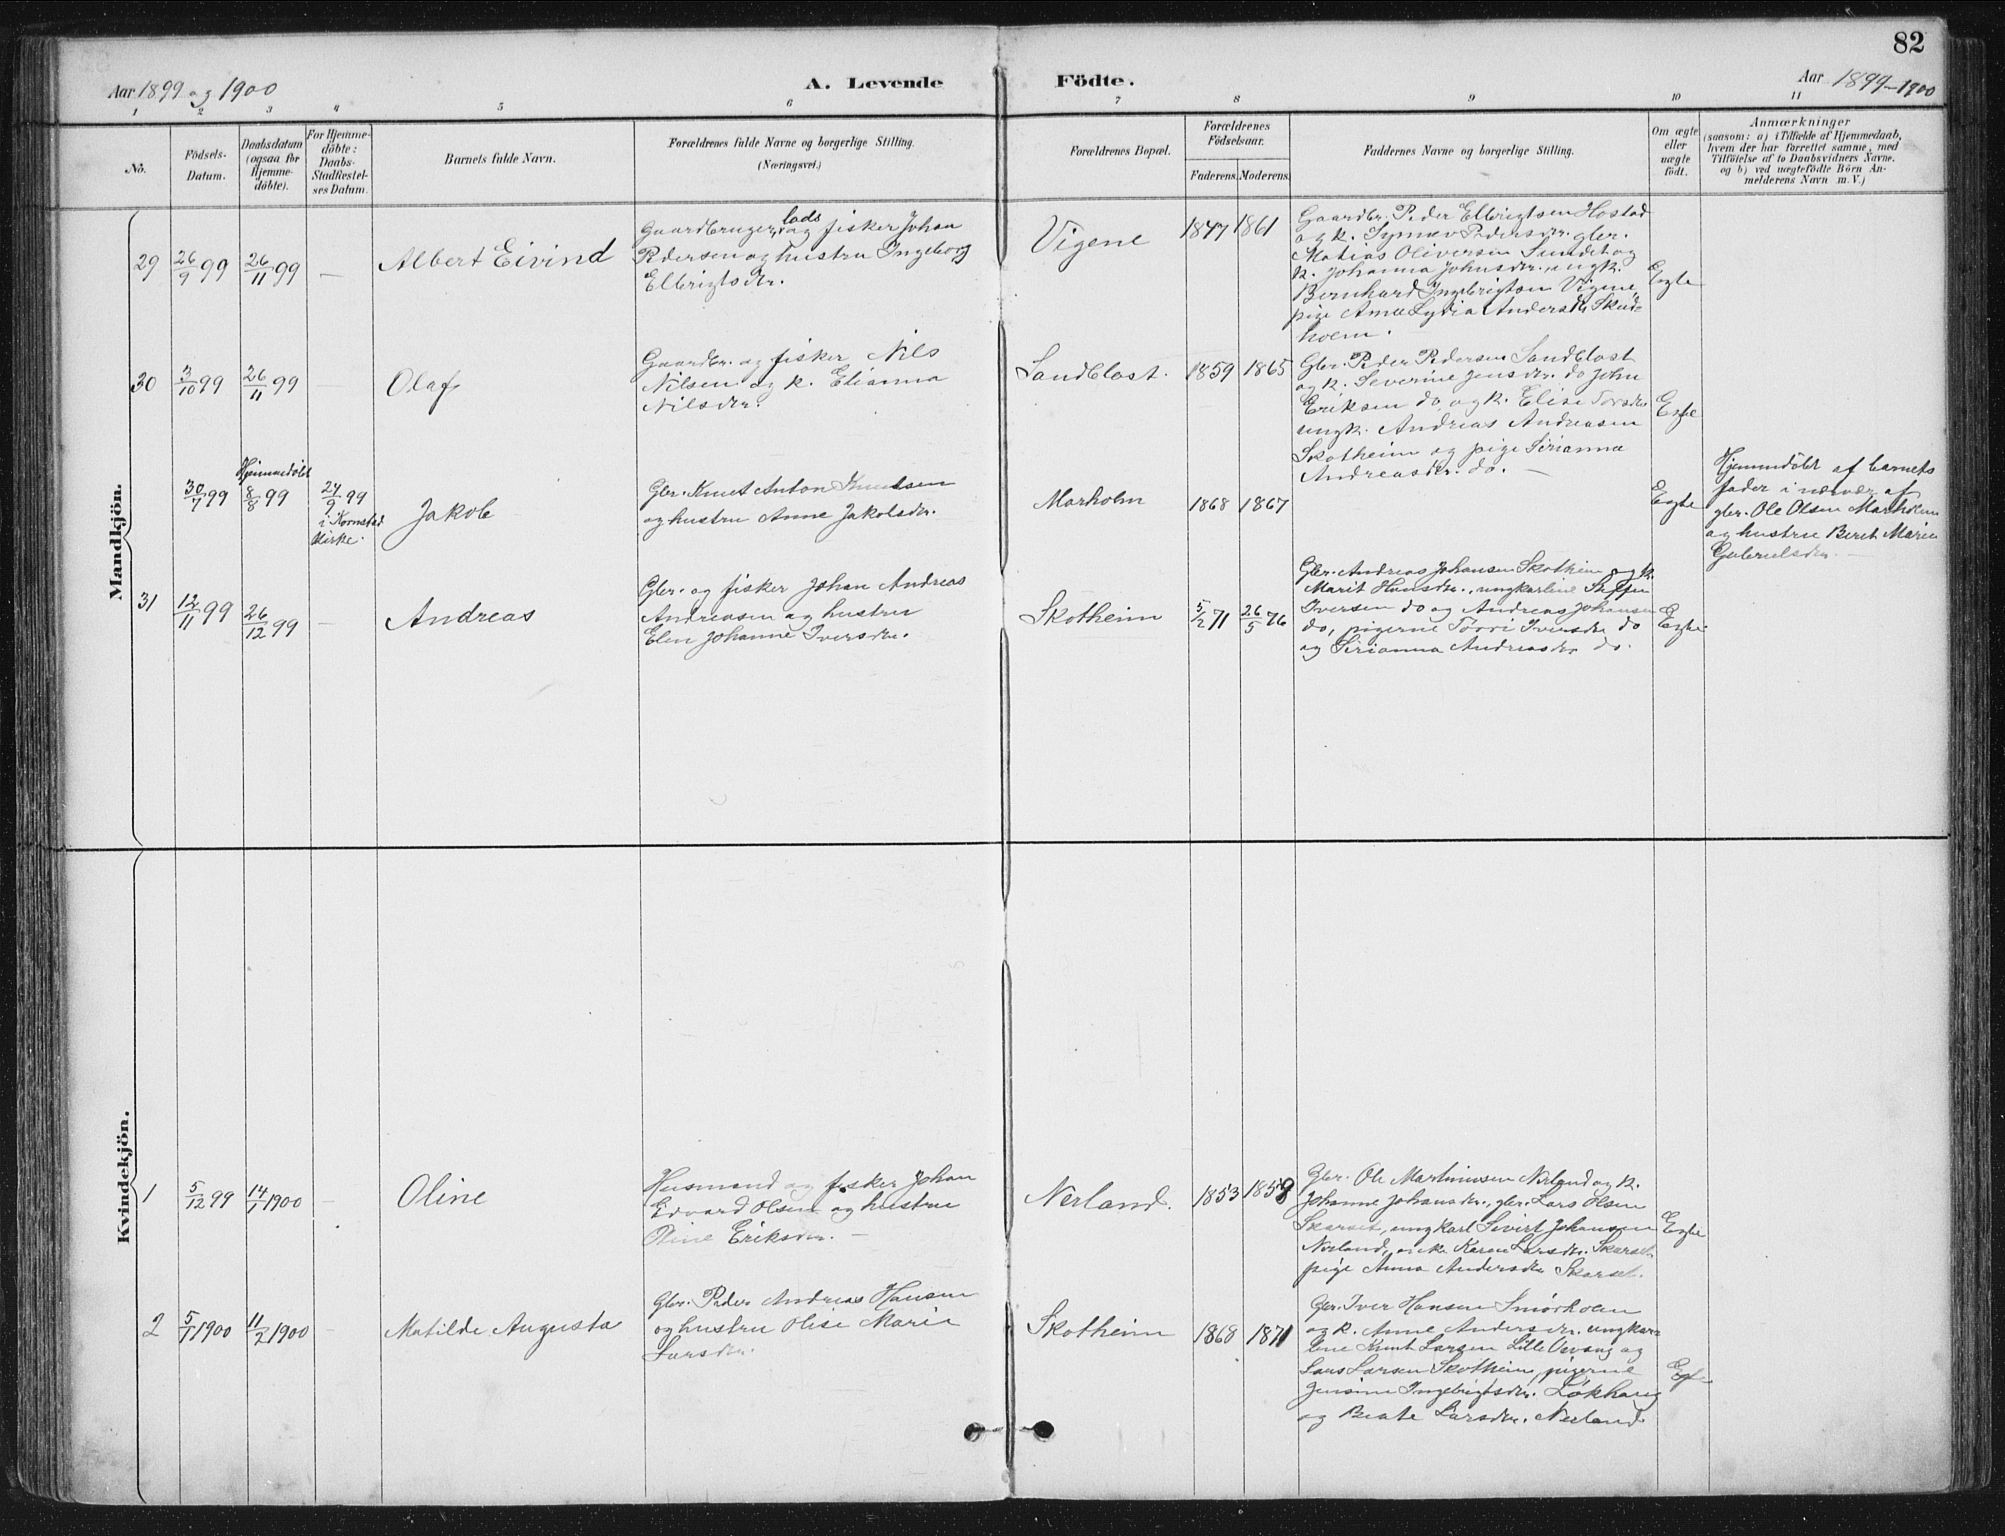 82
Aar 1899 og 1900
A. Levende Födte.
Aar 1899-1900
1 2 3 4 5 6 7 8 9 10 11
No.
Födsels-
Datum.
Daabsdatum
(ogsaa for
Hjemme-
döbte).
For Hjemme-
döbte:
Daabs-
Stadfæstel-
ses Datum.
Barnets fulde Navn.
Forældrenes fulde Navne og borgerlige Stilling.
(Næringsvei.)
Forældrenes Bopæl.
Forældrenes
Födselsaar.
Faderens. Moderens.
Faddernes Navne og borgerlige Stilling.
Om ægte
eller
uægte
födt.
Anmærkninger
(saasom: a) i Tilfælde af Hjemmedaab,
hvem der har forrettet samme, med
Tilföielse af to Daabsvidners Navne.
og b) ved uægtefödte Börn An-
melderens Navn m. V.)
Mandkjön.
29
26/9 99
26/11 99
—
Albert Eivind
Gaardbruger, lods og fisker Johan
Pedersen og hustru Ingeborg
Ellerigtsdtr.
Vigene
1847
1861
Gaardbr. Peder Ellerigtsen Hostad
og k. Synnøv Pedersdtr. gbr.
Matias Oliversen Sundet og
k. Johanna Johnsdtr., ungk.
Bernhard Ingebrigtsen Vigene,
pige Ama Lydia Andersdtr Skud-
holm.
Egte
30
3/10 99
26/11 99
—
Olaf
Gaardbr. og fisker Nils
Nilsen og k. Elianna
Nilsdtr.
Sandblost.
1859
1865
Gbr. Peder Pedersen Sandblost
og k. Severine Jensdtr. do John
Eriksen do, og k. Elise
ungk. Andreas Andreasen
Skotheim og pige Serianna
Andreasdtr. do. —
Egte
30/7 99
Hjemmedöbt
8/8 99
24/9 99
i Kornstad
Kirke.
Jakob
Gbr. Knut Anton Knutsen
og hustru Anne Jakobsdtr.
Marholm
1868
1867
Egte
Hjemmedöbt af barnets
fader i nærvær af
gbr. Ole Olsen Marholm
og hustru Beret Marie
Gabrielsdtr. —
31
12/11 99
26/12 99
—
Andreas
Gbr. og fisker Johan Andreas
Andreasen og hustru
Elen Johanne Iversdtr.
Skotheim
5/2 71
26/5 76
Gbr. Andreas Johansen Skotheim og k.
Marit Hansdtr., ungkarlene Steffen
Iversen do og Andreas Johansen
do, pigerne Iversdtr do
og Serianna Andreasdtr do.
Egte
Kvindekjön.
1
5/12 99
14/1 1900
—
Oline
Husmand og fisker Johan
Edvard Olsen og hustru
Oline Eriksdtr. —
Nerland.
1853
1859
Gbr. Ole Martinusen Nerland og k.
Johanne Johansdtr., gbr. Lars Olsen
Skarset, ungkarl Sivert Johansen
Nerland, Karen Larsdtr. Skarset,
pige Anna Andersdtr Skarset.
Egte
2
5/1 1900
11/2 1900
—
Matilde Augusta
Gbr. Peder Andreas Hansen
og hustru Olise Marie
Larsdtr.
Skotheim
1868
1871
Gbr. Iver Hansen Smörholm
og k. Anne Andersdtr. ungkar-
lene Knut Larsen Lille Vevang og
Lars Larsen Skotheim, pigerne
Jensine Ingebrigtsdtr. Lökhaug
og Beate Larsdtr. Nerland
Egte